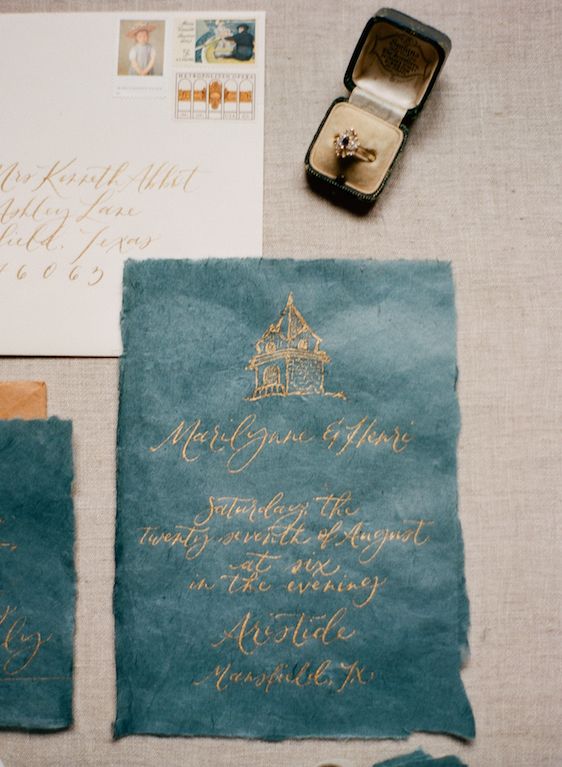 METROPOLITAN OPERA
Mrs Kenneth Abbot
Ashley Lane
field, Texas
76063
Marilynne & Henri
Saturday, the
twenty seventh of August
at six
in the evening
Aristide
Mansfield, Tx